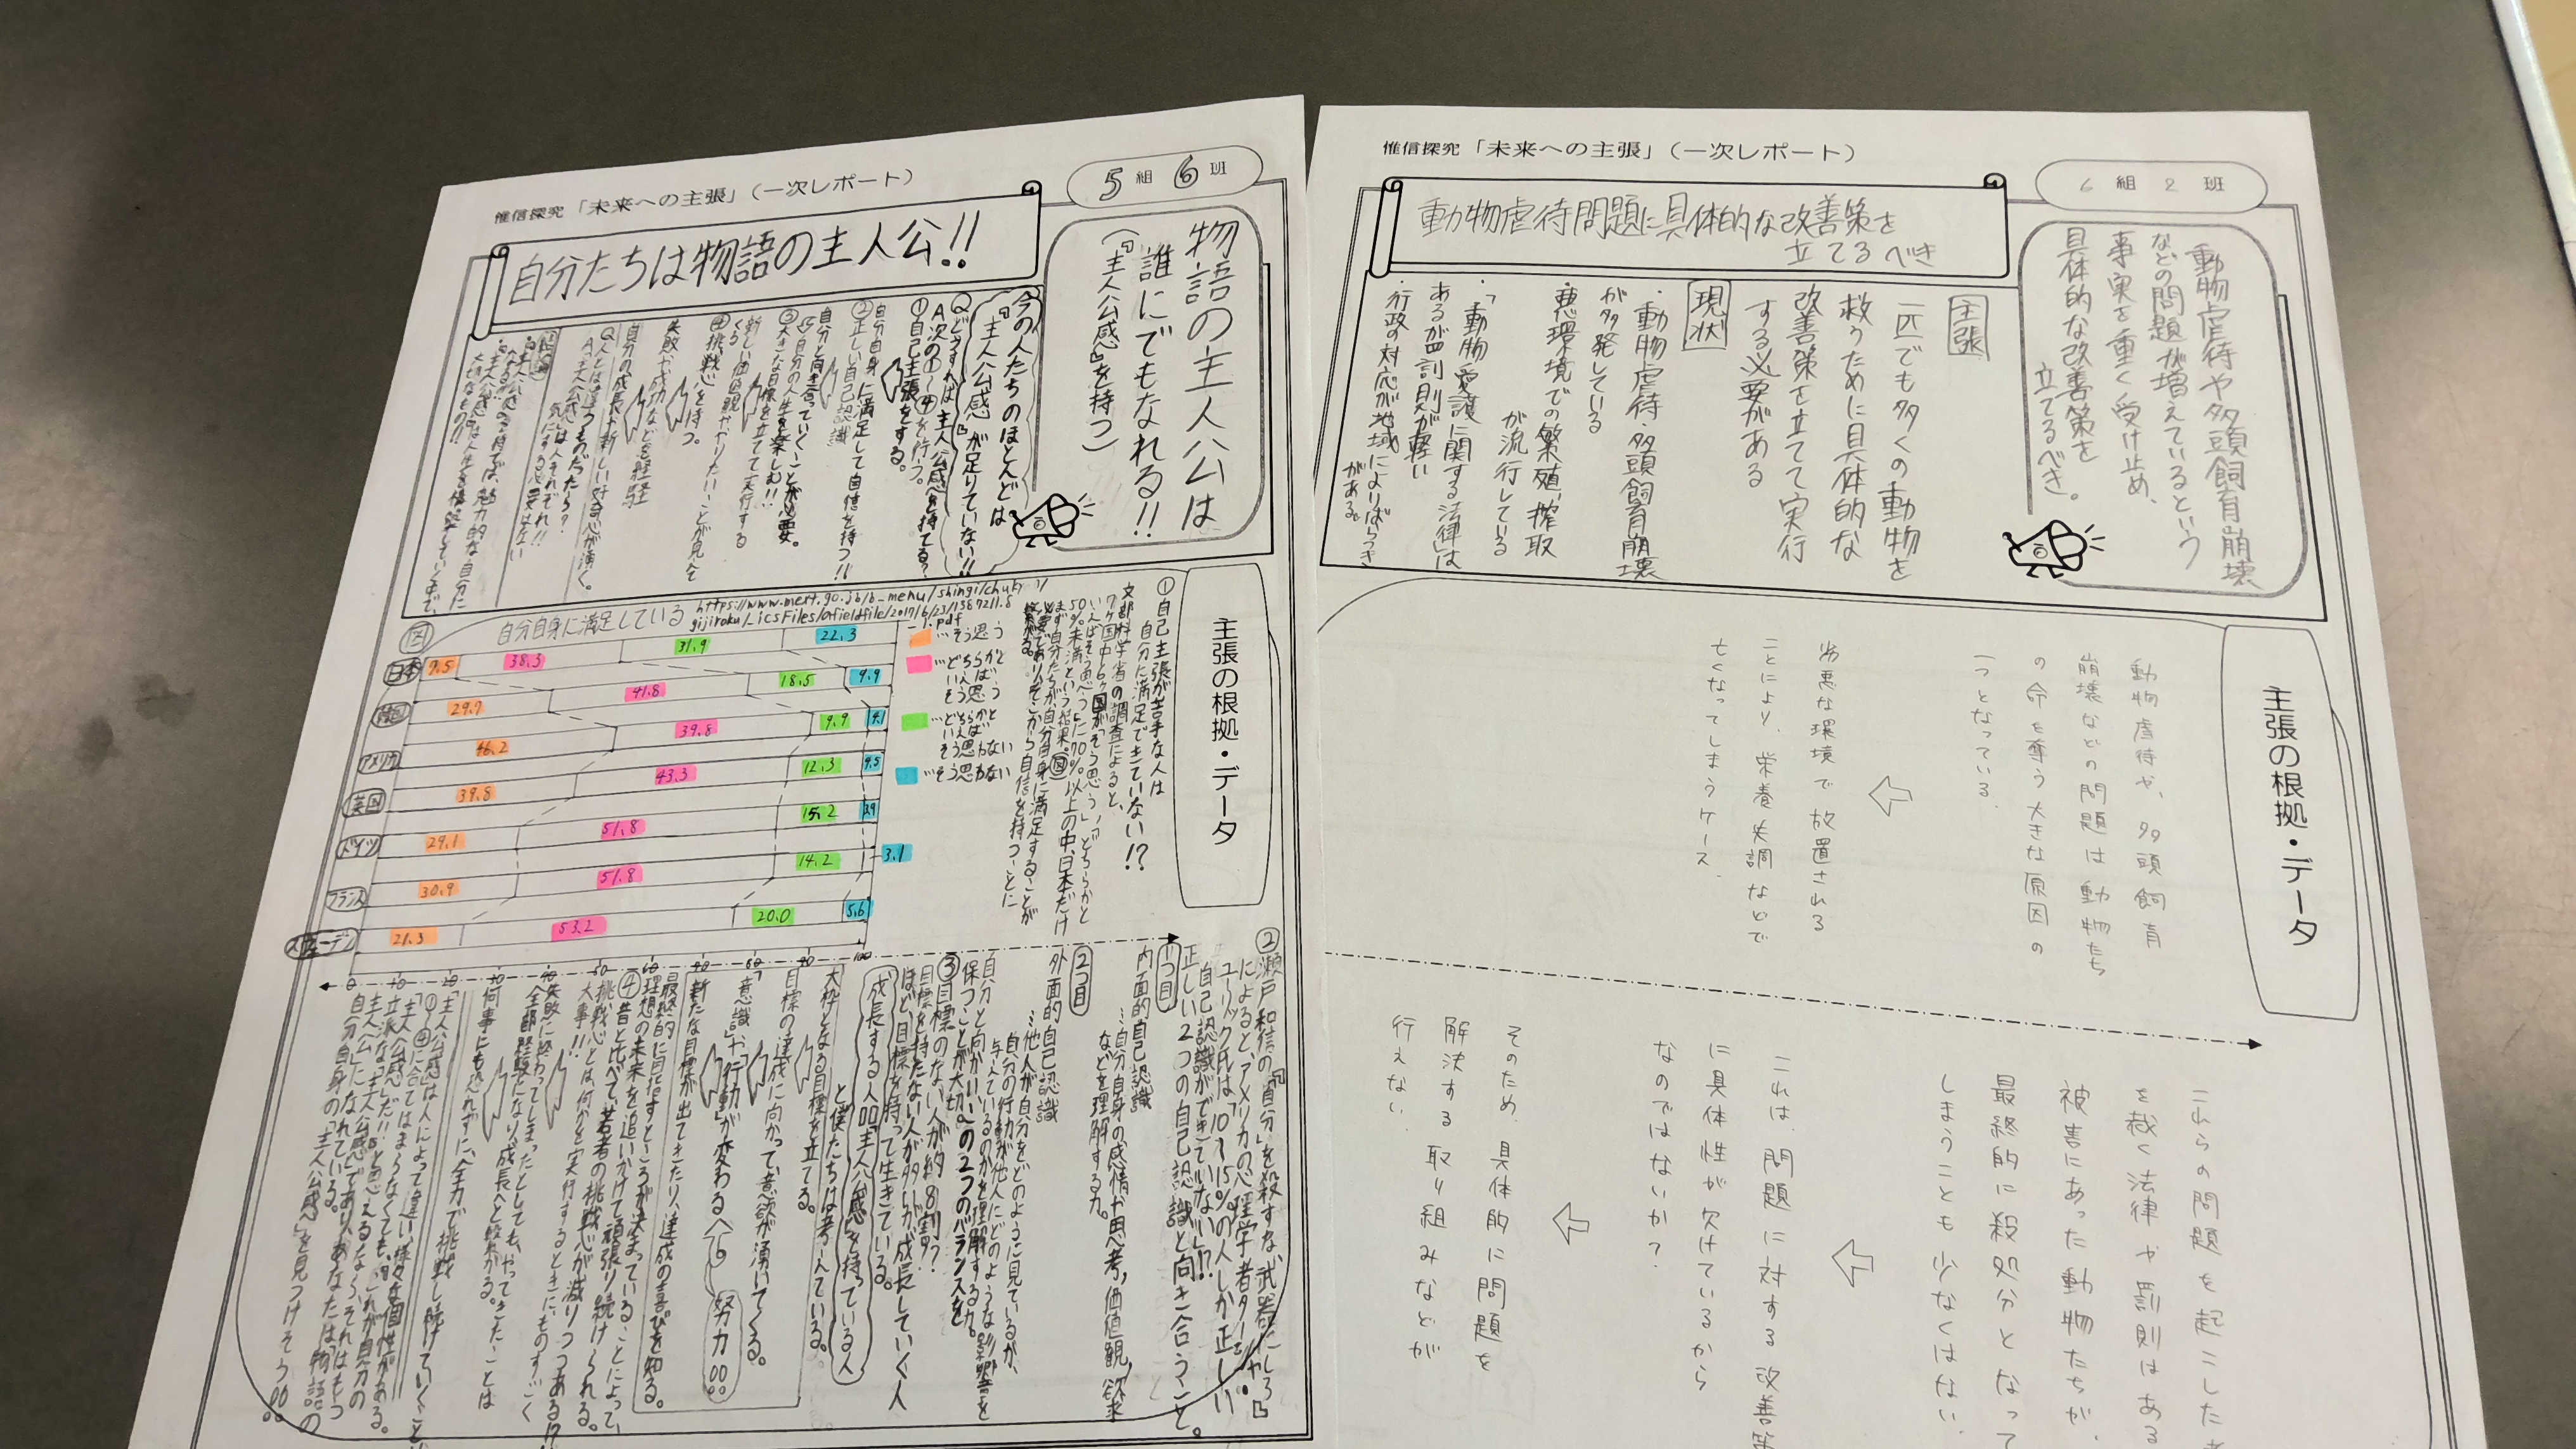 惟信探究「未来への主張」(一次レポート)
5組6班
自分たちは物語の主人公!!
物語の主人公は
誰にでもなれる!!
(『主人公感』を持つ)
今の人たちのほとんどは
『主人公感』が足りていない!!
Qどうすれば主人公感を持てる?
A次の①〜④を行う。
①自己主張をする。
自分自身に満足して自信を持つ!!
②正しい自己認識
自分と向き合っていくことが必要。
自分の人生を楽しむ!!
③大きな目標を立てて実行する
新しい価値観ややりたいことが見え
くる
④『挑戦心』を持つ。
失敗や成功などを経験
自分の成長や新しい好奇心が湧く。
Q人とは違うものだったら?
A『主人公感』は人それぞれ!!
気にする必要はない
主張の根拠・データ
①自己主張が苦手な人は
自分に満足できていない!?
文部科学省の調査によると、
7ヶ国中6ヶ国が「そう思う」「どちらかと
いえばそう思う」に70%以上の中、日本だけ
50%未満という結果。図
まず自分たちが、自分自身に満足することが
必要であり、そこから自信を持つことに
繋がる。
図
自分自身に満足している
日本 7.5 38.3 31.9 22.3
韓国 29.7 41.8 18.5 9.9
アメリカ 46.2 39.8 9.9 4.1
英国 39.8 43.3 12.3 4.5
ドイツ 29.1 51.8 15.2 3.9
フランス 30.9 51.8 14.2 3.1
スウェーデン 21.3 53.2 20.0 5.6
…そう思う
…どちらかと
いえば
そう思う
…どちらかと
いえば
そう思わない
…そう思わない
②瀬戸和信の『「自分」を殺すな、武器にしろ』
によると、アメリカの心理学者ターシャ・
ユーリック氏は「10〜15%の人しか正しい
自己認識ができていない」!?
正しい2つの自己認識と向き合うこと。
1つ目
内面的自己認識
…自分自身の感情や思考,価値観,欲求
などを理解する力。
2つ目
外面的自己認識
…他人が自分をどのように見ているか、
自分の行動が他人にどのような影響を
与えているのかを理解する力。
自分と向かい、この2つのバランスを
保つことが大切。
③目標のない人が約8割?
目標を持たない人が多いが、成長していく人
ほど目標を持って生きている。
成長する人=『主人公感』を持っている人
と僕たちは考えている。
大枠となる目標を立てる。
目標の達成に向かって意欲が湧いてくる。
「意識」や「行動」が変わるへ
努力
新たな目標が出てきたり、達成の喜びを知る。
最終的に目指すところが決まっていることによって、
理想の未来を追いかけて頑張り続けられる。
④昔と比べて、若者の挑戦心が減りつつある!?
挑戦心とは、何かを実行するときにものすごく
大事!!
失敗に終わってしまったとしても、やってきたことは
全部経験となり、成長へと繋がる。
何事にも恐れずに、全力で挑戦し続けていくこと
『主人公感』は人によって違い、様々な個性がある。
①〜④に合てはまらなくても、「これが自分の
『主人公感』だ!!」と思えるなら、それはもう
立派な『主人公感』であり、あなたは『物語の
主人公』になれている。
自分自身の『主人公感』を見つけそう
惟信探究「未来への主張」(一次レポート)
6組2班
動物虐待問題に具体的な改善策を
立てるべき
動物虐待や多頭飼育崩壊
などの問題が増えているという
事実を重く受け止め、
具体的な改善策を
立てるべき。
主張
一匹でも多くの動物を
救うために具体的な
改善策を立てて実行
する必要がある
現状
・動物虐待・多頭飼育崩壊
が多発している
・悪環境での繁殖,搾取
が流行している
・「動物愛護に関する法律」は
あるが罰則が軽い
・行政の対応が地域によりばらつき
がある。
主張の根拠・データ
動物虐待や、多頭飼育
崩壊などの問題は動物たち
の命を奪う大きな原因の
一つとなっている.
劣悪な環境で放置される
ことにより、栄養失調などで
亡くなってしまうケース.
これらの問題を起こした者
を裁く法律や罰則はある
被害にあった動物たちが、
最終的に殺処分となって
しまうことも少なくはない.
これは、問題に対する改善策
に具体性が欠けているから
なのではないか?
そのため、具体的に問題を
解決する取り組みなどが
行えない.